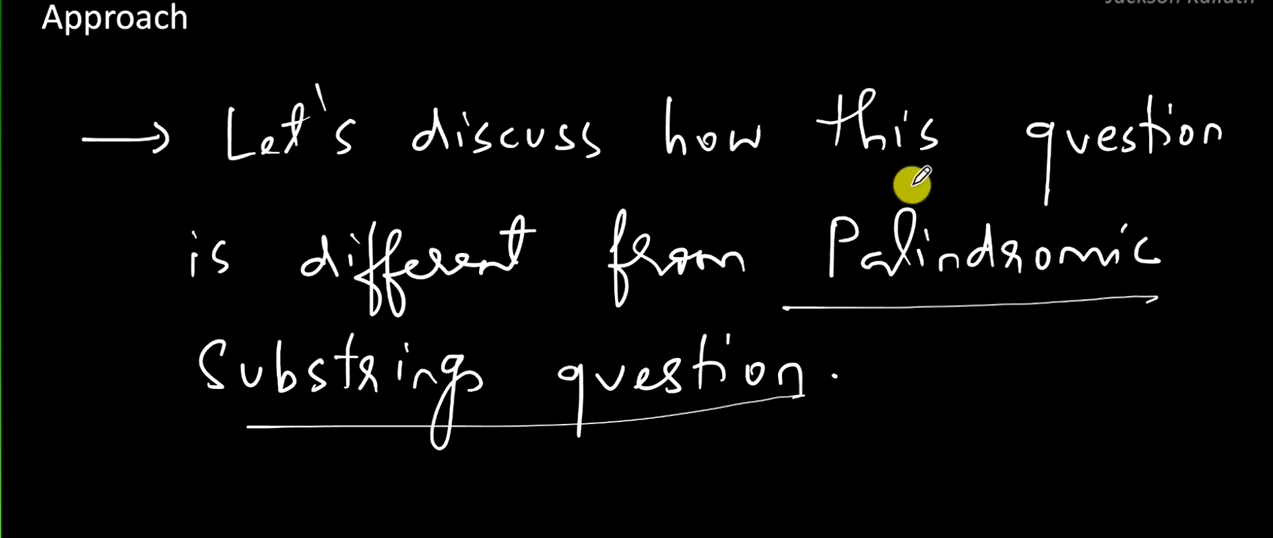 Approach
→ Let's discuss how this question
is different from Palindromic
Substrings question.